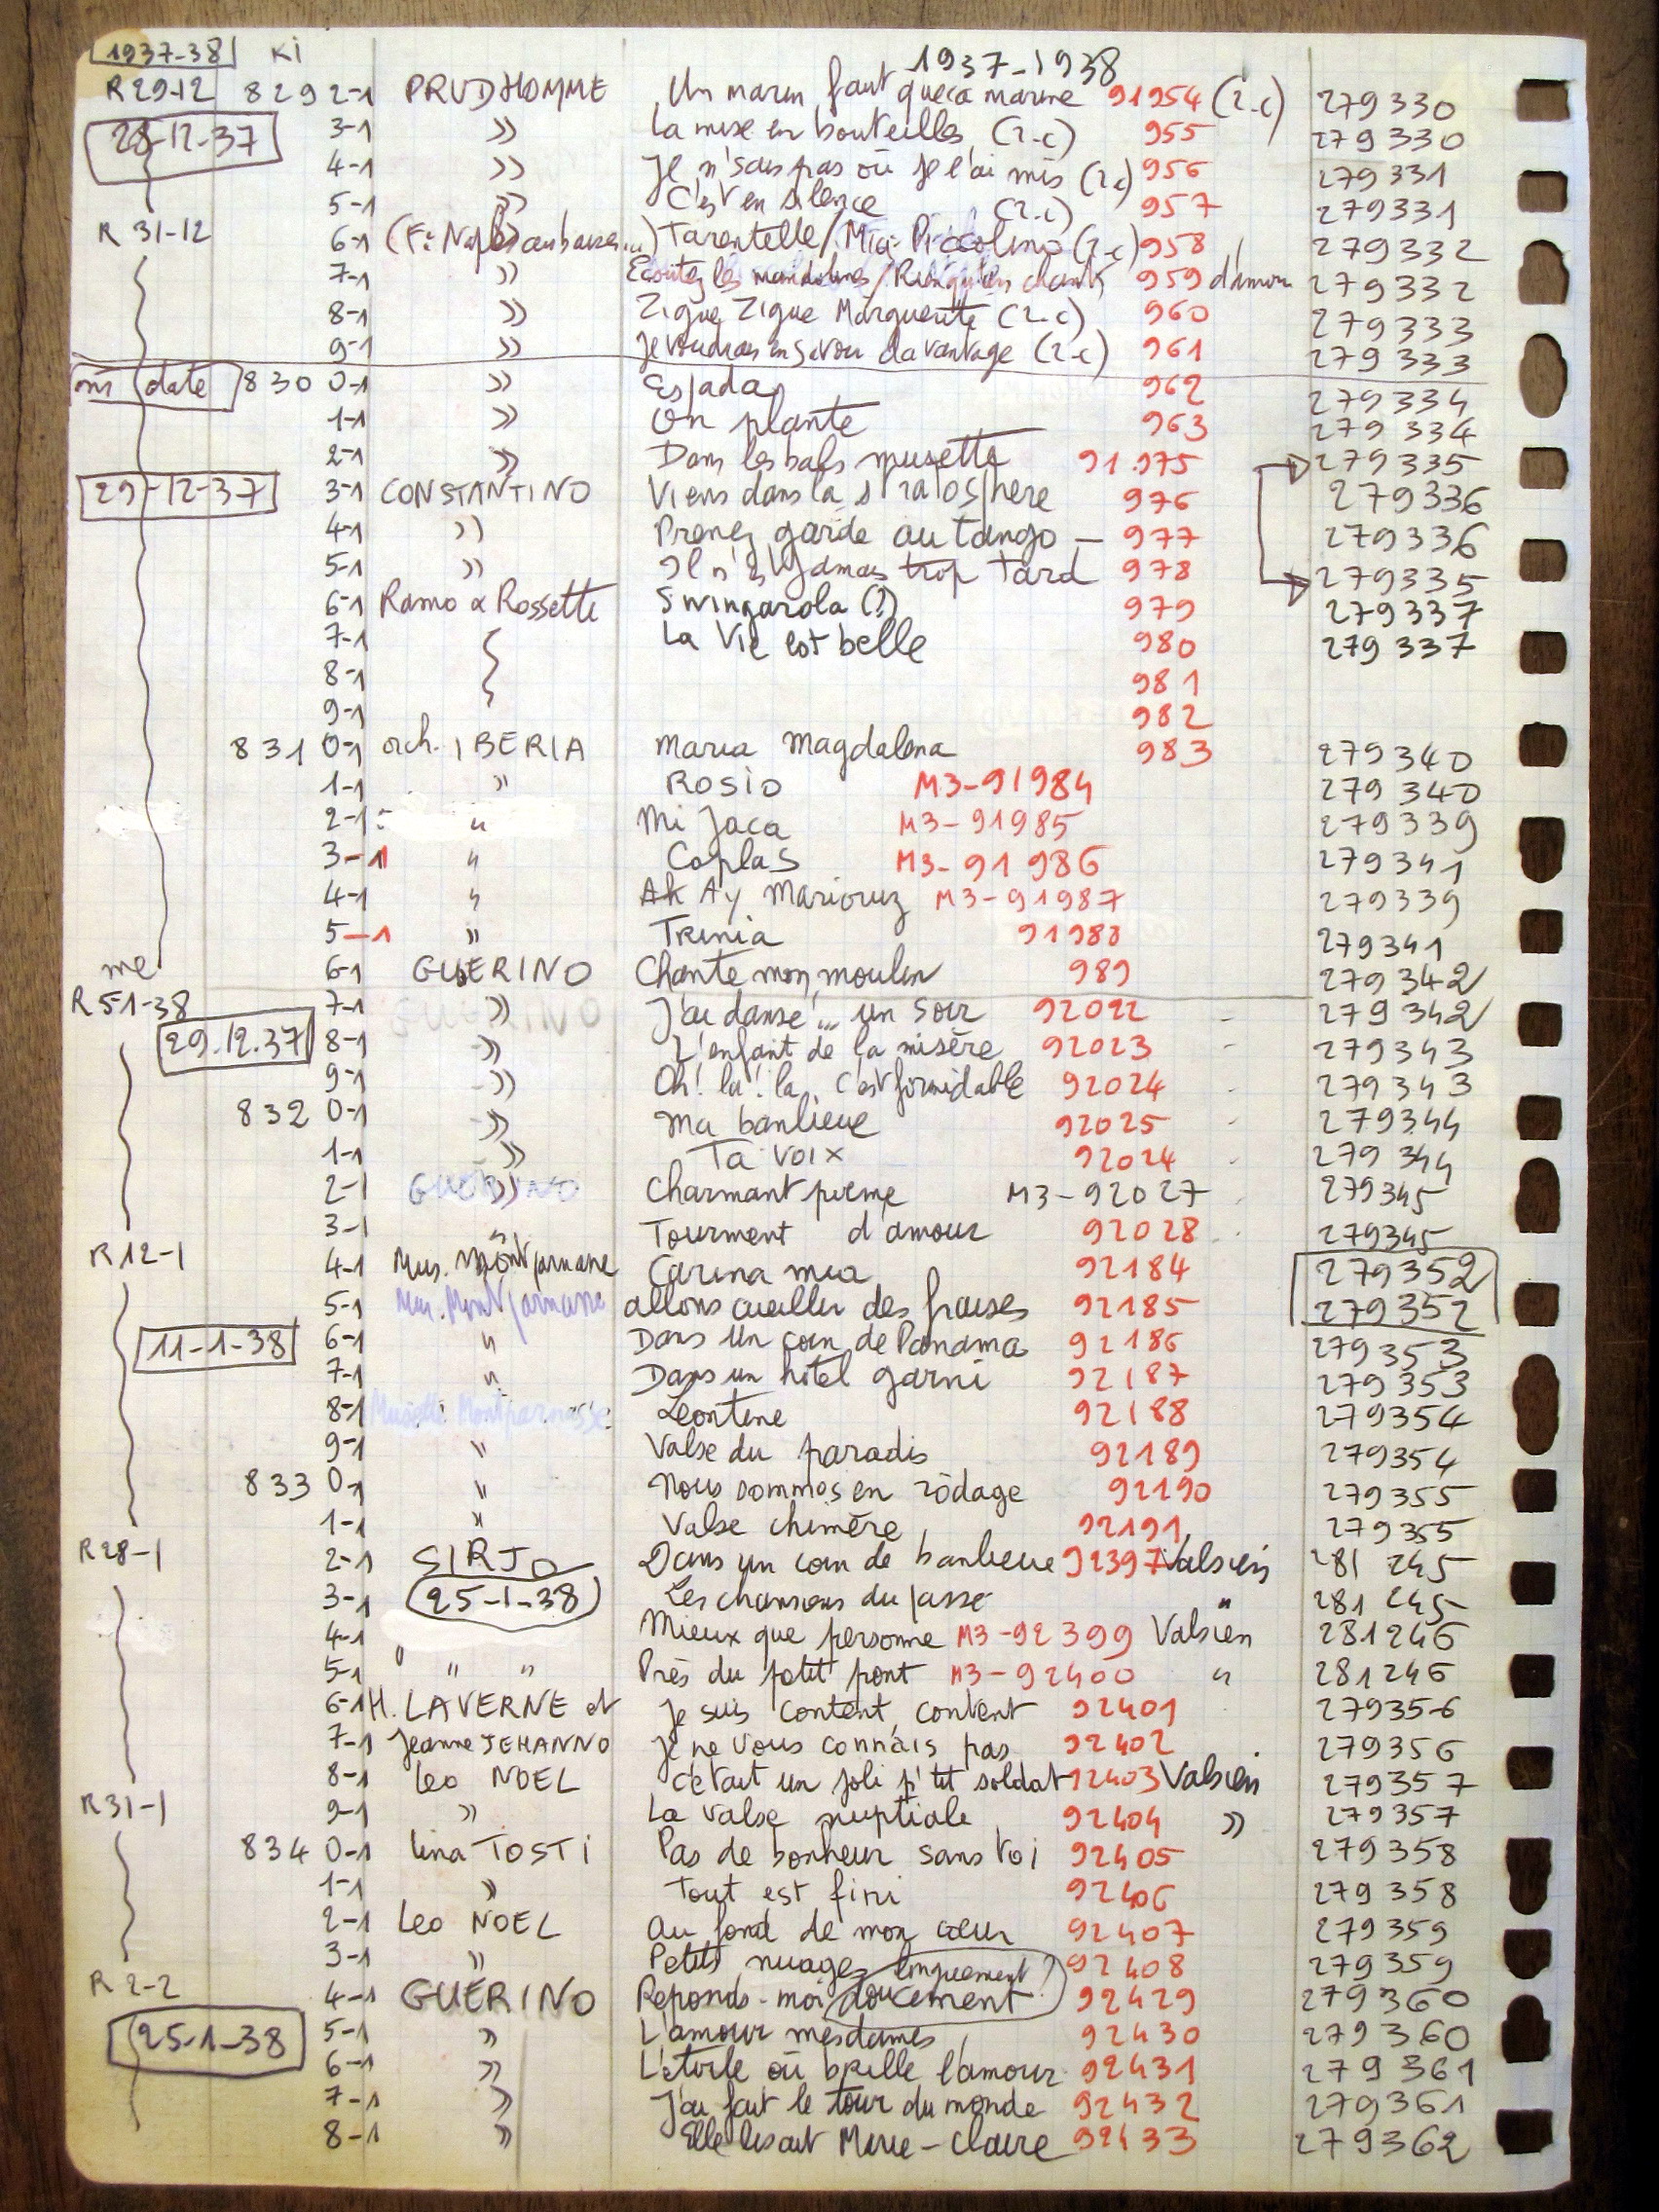 1937-38 Ki 1937-1938
R29-12 829 2-1 PRUDHOMME Un marin faut que ça marine 91954 (2-c) 279330
28-12-37 3-1 » La mise en bouteilles (2-c) 955 279330
4-1 » Je n'sais pas où je l'ai mis (2-c) 956 279331
5-1 » C'est en silence (2-c) 957 279331
R 31-12 6-1 (F: Naples au baiser...) Tarentelle/Mia Piccolina (2-c) 958 279332
7-1 » Ecoutez les mandolines/Rien qu'un chant 959 d'amour 279332
8-1 » Zigue Zigue Marguerite (2-c) 960 279333
9-1 » Je voudrais en savoir davantage (2-c) 961 279333
ms date 830 0-1 » Espada 962 279334
1-1 » On plante 963 279334
2-1 » Dans les bals musette 91.975 279335
29-12-37 3-1 CONSTANTINO Viens dans la stratosphere 976 279336
4-1 » Prenez garde au tango — 977 279336
5-1 » Il n'est jamais trop tard 978 279335
6-1 Ramo & Rossette Swingarola (?) 979 279337
7-1 La Vie est belle 980 279337
8-1 981
9-1 982
831 0-1 orch. IBERIA Maria Magdalena 983 279340
1-1 " Rosio M3-91984 279340
2-1 " Mi Jaca M3-91985 279339
3-1 " Coplas M3-91986 279341
4-1 " Ak Ay Maricruz M3-91987 279339
5-1 " Trinia 91988 279341
me 6-1 GUERINO Chante mon moulin 989 279342
R 5-1-38 7-1 » J'ai dansé... un soir 92022 279342
29.12.37 8-1 » L'enfant de la misère 92023 279343
9-1 » Oh! la! la, c'est formidable 92024 279343
832 0-1 » Ma banlieue 92025 279344
1-1 » Ta voix 92024 279344
2-1 GUERINO » Charmant poème M3-92027 279345
3-1 " Tourment d'amour 92028 279345
R 12-1 4-1 Mus. Montparnasse Carina mia 92184 279352
5-1 Mus. Montparnasse allons cueillir des fraises 92185 279352
11-1-38 6-1 " Dans un coin de Panama 92186 279353
7-1 " Dans un hôtel garni 92187 279353
8-1 Musette Montparnasse Léontine 92188 279354
9-1 " Valse du paradis 92189 279354
833 0-1 " Nous sommes en rôdage 92190 279355
1-1 " Valse chimère 92191 279355
R28-1 2-1 SIRJO Dans un coin de banlieue 92397 Valsien 281 245
3-1 25-1-38 Les chansons du passé " 281 245
4-1 Mieux que personne M3-92399 Valsien 281246
5-1 " " " Près du petit pont M3-92400 " 281246
6-1 H. LAVERNE et Je suis content, content 92401 279356
7-1 Jeanne JEHANNO Je ne vous connais pas 92402 279356
8-1 Leo NOEL C'était un joli p'tit soldat 92403 Valsien 279357
R31-1 9-1 » La valse nuptiale 92404 » 279357
834 0-1 Lina TOSTI Pas de bonheur sans toi 92405 279358
1-1 » Tout est fini 92406 279358
2-1 Leo NOEL Au fond de mon cœur 92407 279359
3-1 » Petits nuages 92408 279359
longuement?
R 2-2 4-1 GUERINO Réponds-moi doucement 92429 279360
25-1-38 5-1 » L'amour mesdames 92430 279360
6-1 » L'étoile où brille l'amour 92431 279361
7-1 » J'ai fait le tour du monde 92432 279361
8-1 » Elle lisait Marie-Claire 92433 279362